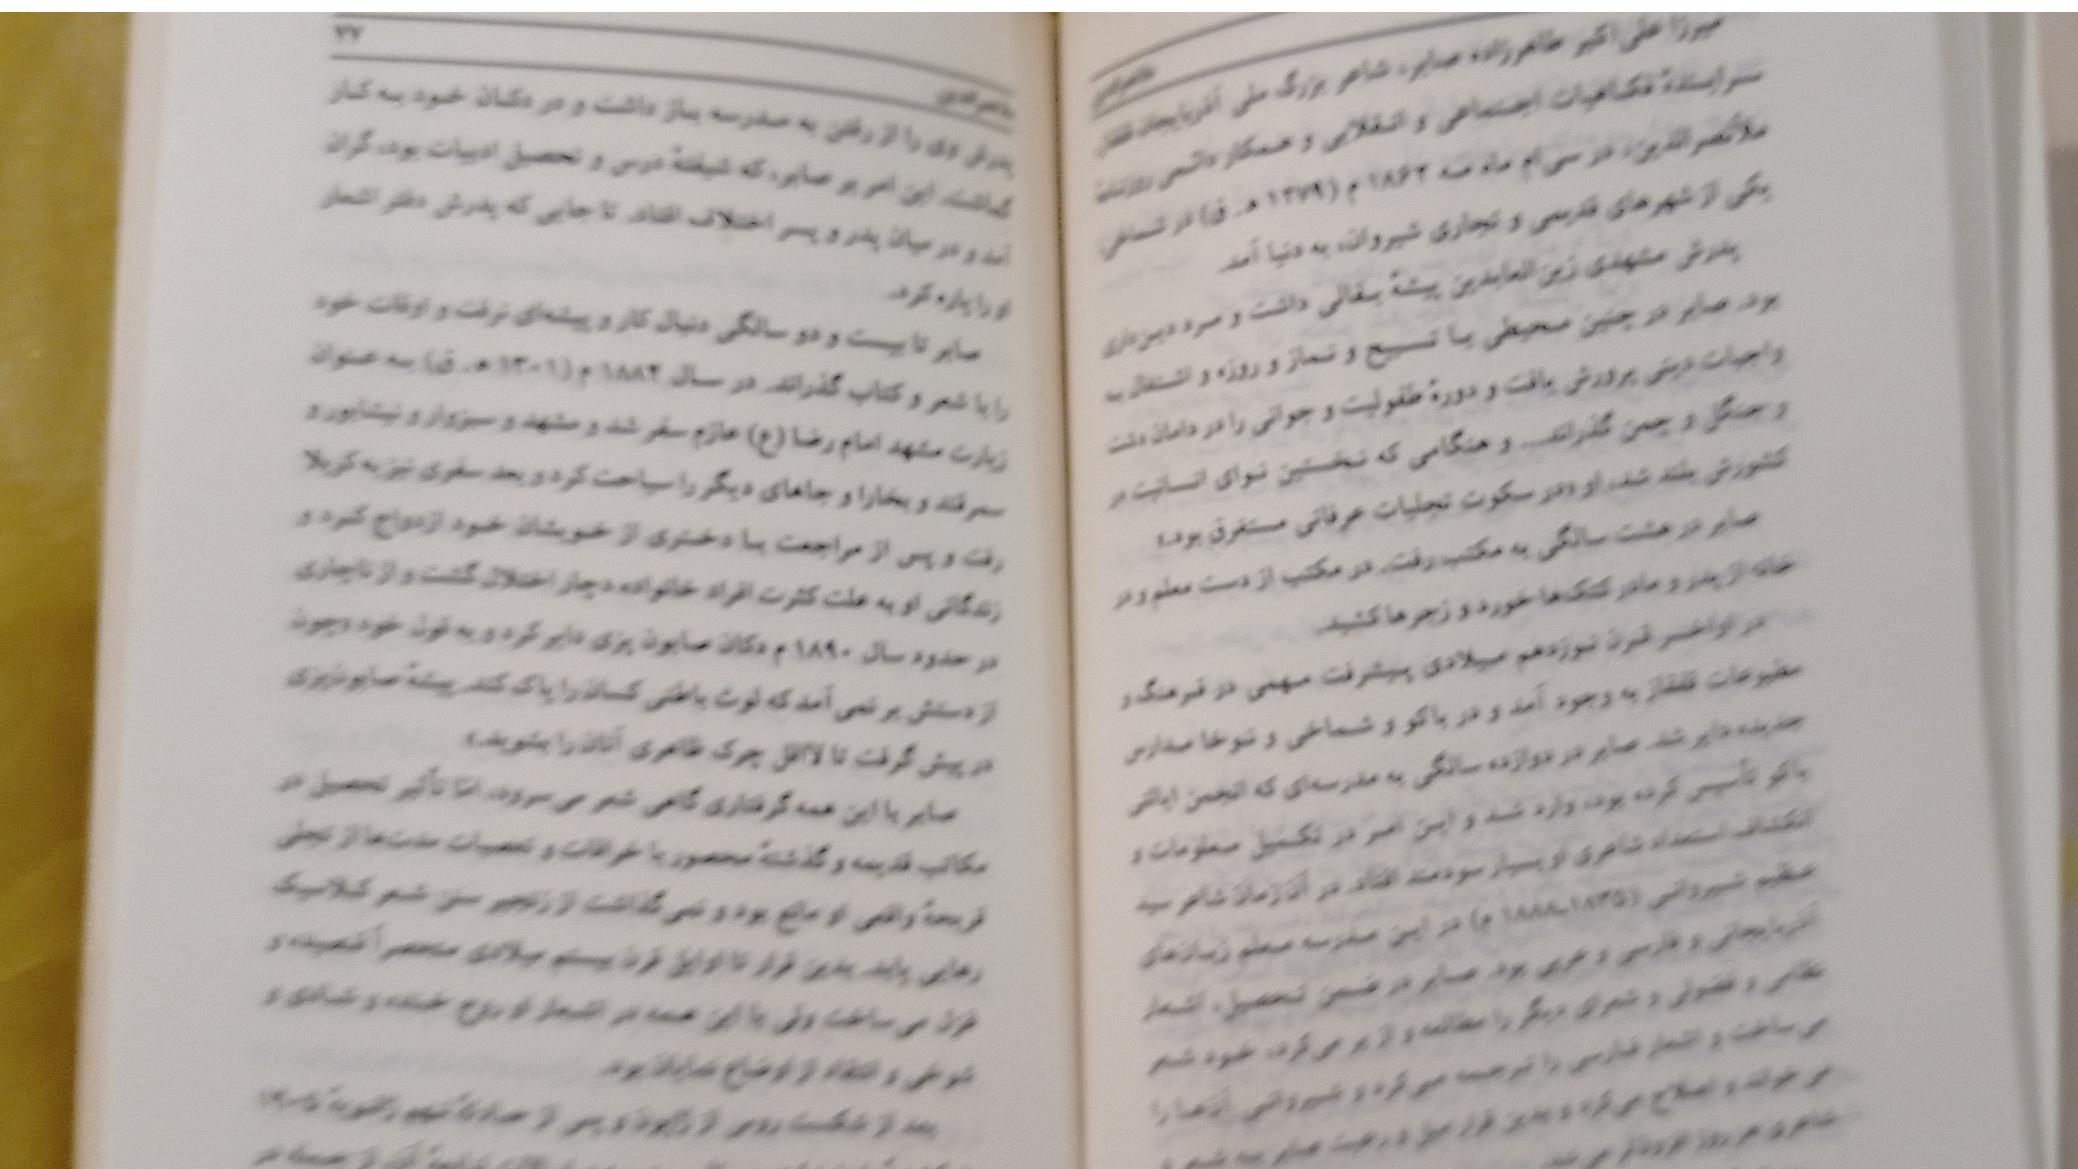 میرزا علی‌اکبر طاهرزاده صابر، شاعر بزرگ ملی آذربایجان قفقاز
سرایندهٔ فکاهیات اجتماعی و انقلابی و همکار دائمی روزنامهٔ
ملانصرالدین، در سی‌ام ماه مه ۱۸۶۲ م (۱۲۷۹ ه‍. ق) در شماخی
یکی از شهرهای قدیمی و تجاری شیروان، به دنیا آمد.
پدرش مشهدی زین‌العابدین پیشهٔ بقالی داشت و مرد دین‌داری
بود. صابر در چنین محیطی با تسبیح و نماز و روزه و اشتغال به
واجبات دینی پرورش یافت و دورهٔ طفولیت و جوانی را در دامان دشت
و جنگل و چمن گذراند... و هنگامی که نخستین نوای انسانیت در
کشورش بلند شد، او «در سکوت تجلیات عرفانی مستغرق بود.»
صابر در هشت سالگی به مکتب رفت. در مکتب از دست معلم و در
خانه از پدر و مادر کتک‌ها خورد و زجرها کشید.
در اواخر قرن نوزدهم میلادی پیشرفت مهمی در فرهنگ و
مطبوعات قفقاز به وجود آمد و در باکو و شماخی و نوخا مدارس
جدیده دایر شد. صابر در دوازده سالگی به مدرسه‌ای که انجمن ایالتی
باکو تأسیس کرده بود، وارد شد و این امر در تکمیل معلومات و
انکشاف استعداد شاعری او بسیار سودمند افتاد. در آن زمان شاعر سید
عظیم شیروانی (۱۸۳۵ـ۱۸۸۸ م) در این مدرسه معلم زبان‌های
آذربایجانی و فارسی و عربی بود. صابر در ضمن تحصیل، اشعار
نظامی و فضولی و شعرای دیگر را مطالعه و از بر می‌کرد، خود شعر
می‌ساخت و اشعار فارسی را ترجمه می‌کرد و شیروانی آن‌ها را
می‌خواند و اصلاح می‌کرد و بدین قرار میل و رغبت صابر به شعر و
شاعری هر روز افزون‌تر می‌شد.
ملانصرالدین
۲۷
پدرش وی را از رفتن به مدرسه باز داشت و در دکان خود به کار
گماشت. این امر بر صابر، که شیفتهٔ درس و تحصیل ادبیات بود، گران
آمد و در میان پدر و پسر اختلاف افتاد. تا جایی که پدرش دفتر اشعار
او را پاره کرد.
صابر تا بیست و دو سالگی دنبال کار و پیشه‌ای نرفت و اوقات خود
را با شعر و کتاب گذراند. در سال ۱۸۸۴ م (۱۳۰۱ ه‍. ق) به عنوان
زیارت مشهد امام رضا (ع) عازم سفر شد و مشهد و سبزوار و نیشابور و
سمرقند و بخارا و جاهای دیگر را سیاحت کرد و بعد سفری نیز به کربلا
رفت و پس از مراجعت با دختری از خویشان خود ازدواج کرد و
زندگانی او به علت کثرت افراد خانواده دچار اختلال گشت و از ناچاری
در حدود سال ۱۸۹۰ م دکان صابون پزی دایر کرد و به قول خود «چون
از دستش بر نمی‌آمد که لوث باطنی کسان را پاک کند، پیشهٔ صابون‌پزی
در پیش گرفت تا لااقل چرک ظاهری آنان را بشوید.»
صابر با این همه گرفتاری گاهی شعر می‌سرود، امّا تأثیر تحصیل در
مکاتب قدیمه و گذشتهٔ محصور با خرافات و تعصبات مدت‌ها از تجلی
قریحهٔ واقعی او مانع بود و نمی‌گذاشت از زنجیر سنن شعر کلاسیک
رهایی یابد. بدین قرار تا اوایل قرن بیستم میلادی منحصراً قصیده و
غزل می‌ساخت ولی با این همه در اشعار او روح خنده و شادی و
شوخی و انتقاد از اوضاع نمایان بود.
بعد از شکست روس از ژاپون و پس از حادثهٔ نهم ژانویهٔ